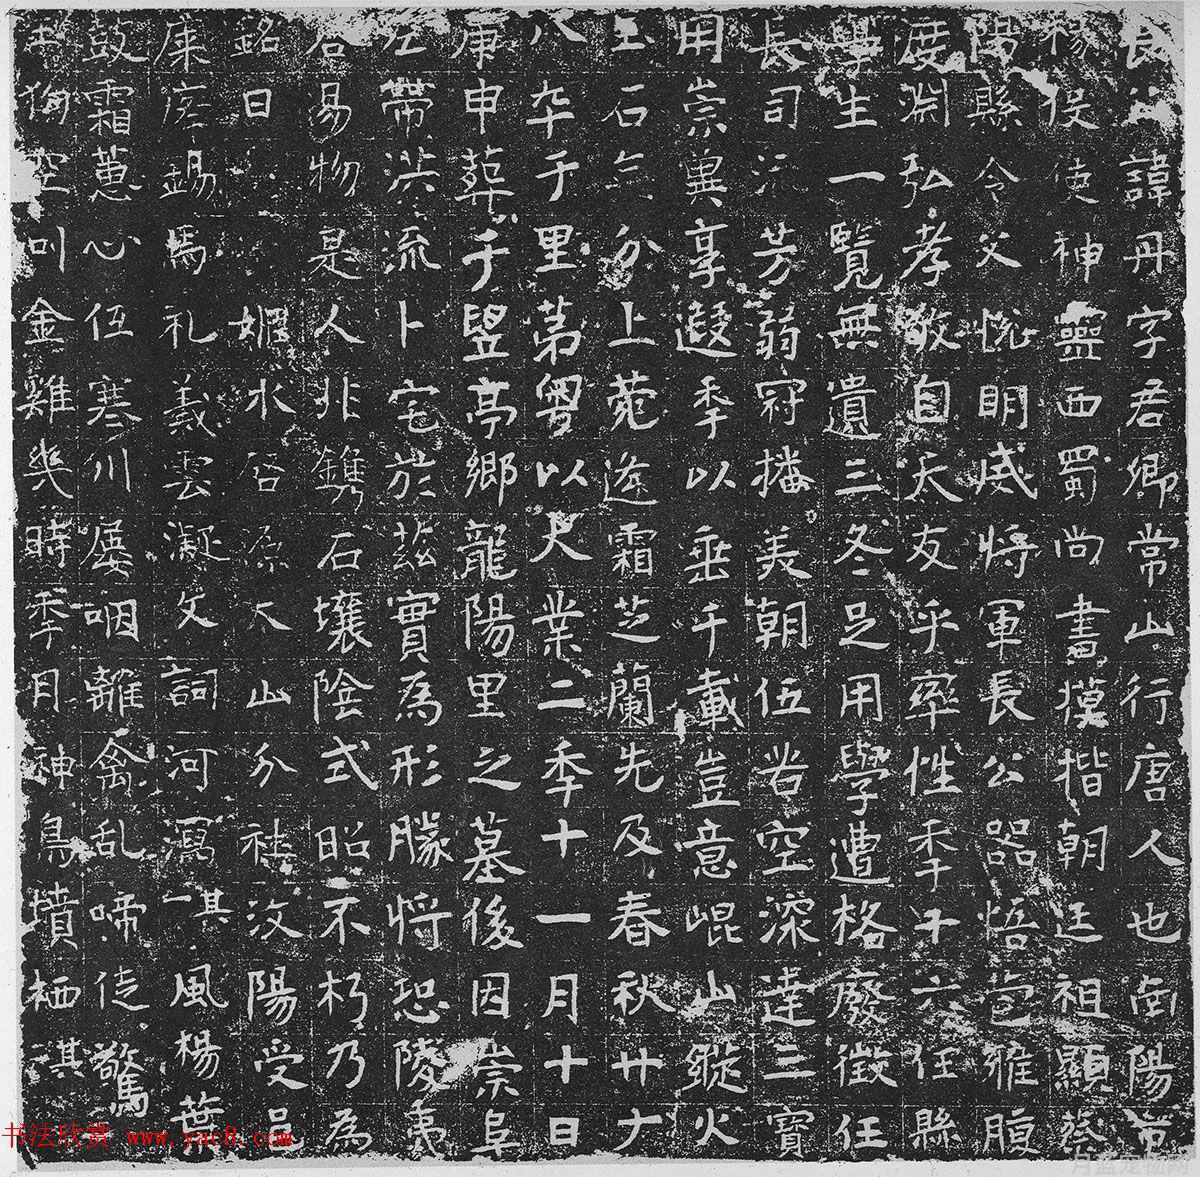 諱丹字君卿常山行唐人也陽
使神靈西蜀尚書模楷朝廷祖顯蔡
陽縣令父悅明威將軍長公器悟苞雅腹
度淵弘孝敬自天友乎率性季十六任縣
學生一覽無遺三冬足用學遭格廢徵任
長司流芳弱冠播美朝伍省空深達三寶
用崇冀享遐季以垂千載豈意崐山縱火
玉石無分上菀逄霜芝蘭先及春秋廿有
八卒于里第粵以大業二季十一月十日
庚申葬于豎亭鄉龍陽里之墓後因崇阜
左帶洪流卜宅於茲實為形勝將恐陵夷
谷易物是人非鐫石壤陰式昭不朽乃為
銘曰嬀水啓源大山分社汶陽受邑
庠錫馬礼義雲凝文詞河瀉其一風楊葉
霜蕙心伍寒川屢咽離禽乱啼徒驚
偶空叫金雞幾時季月神鳥墳栖其
书法欣赏 www.yac8.com